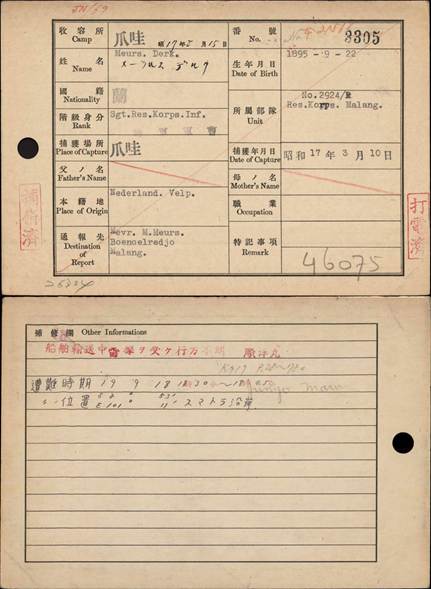 收容所
Camp
爪哇
昭17年 月15日
番號
No.
3305
姓名
Name
Meurs. Derk.
メールス デルク
生年月日
Date of Birth
1895-9-22
國籍
Nationality
蘭
所屬部隊
Unit
No.2924/R
Res.Korps. Malang.
階級身分
Rank
Sgt.Res.Korps.Inf.
捕獲場所
Place of Capture
爪哇
捕獲年月日
Date of Capture
昭和 17年 3月 10日
父ノ名
Father's Name
母ノ名
Mother's Name
本籍地
Place of Origin
Nederland. Velp.
職業
Occupation
通報先
Destination of Report
Mevr. M.Meurs.
Boenoelredjo
Malang.
特記事項
Remark
46075
打電濟
補修欄 Other Informations
船舶輸送中雷撃ヲ受ケ行方不明 順洋丸
遭難時期 19 9 18
位置
スマトラ沿岸
Junyo Maru